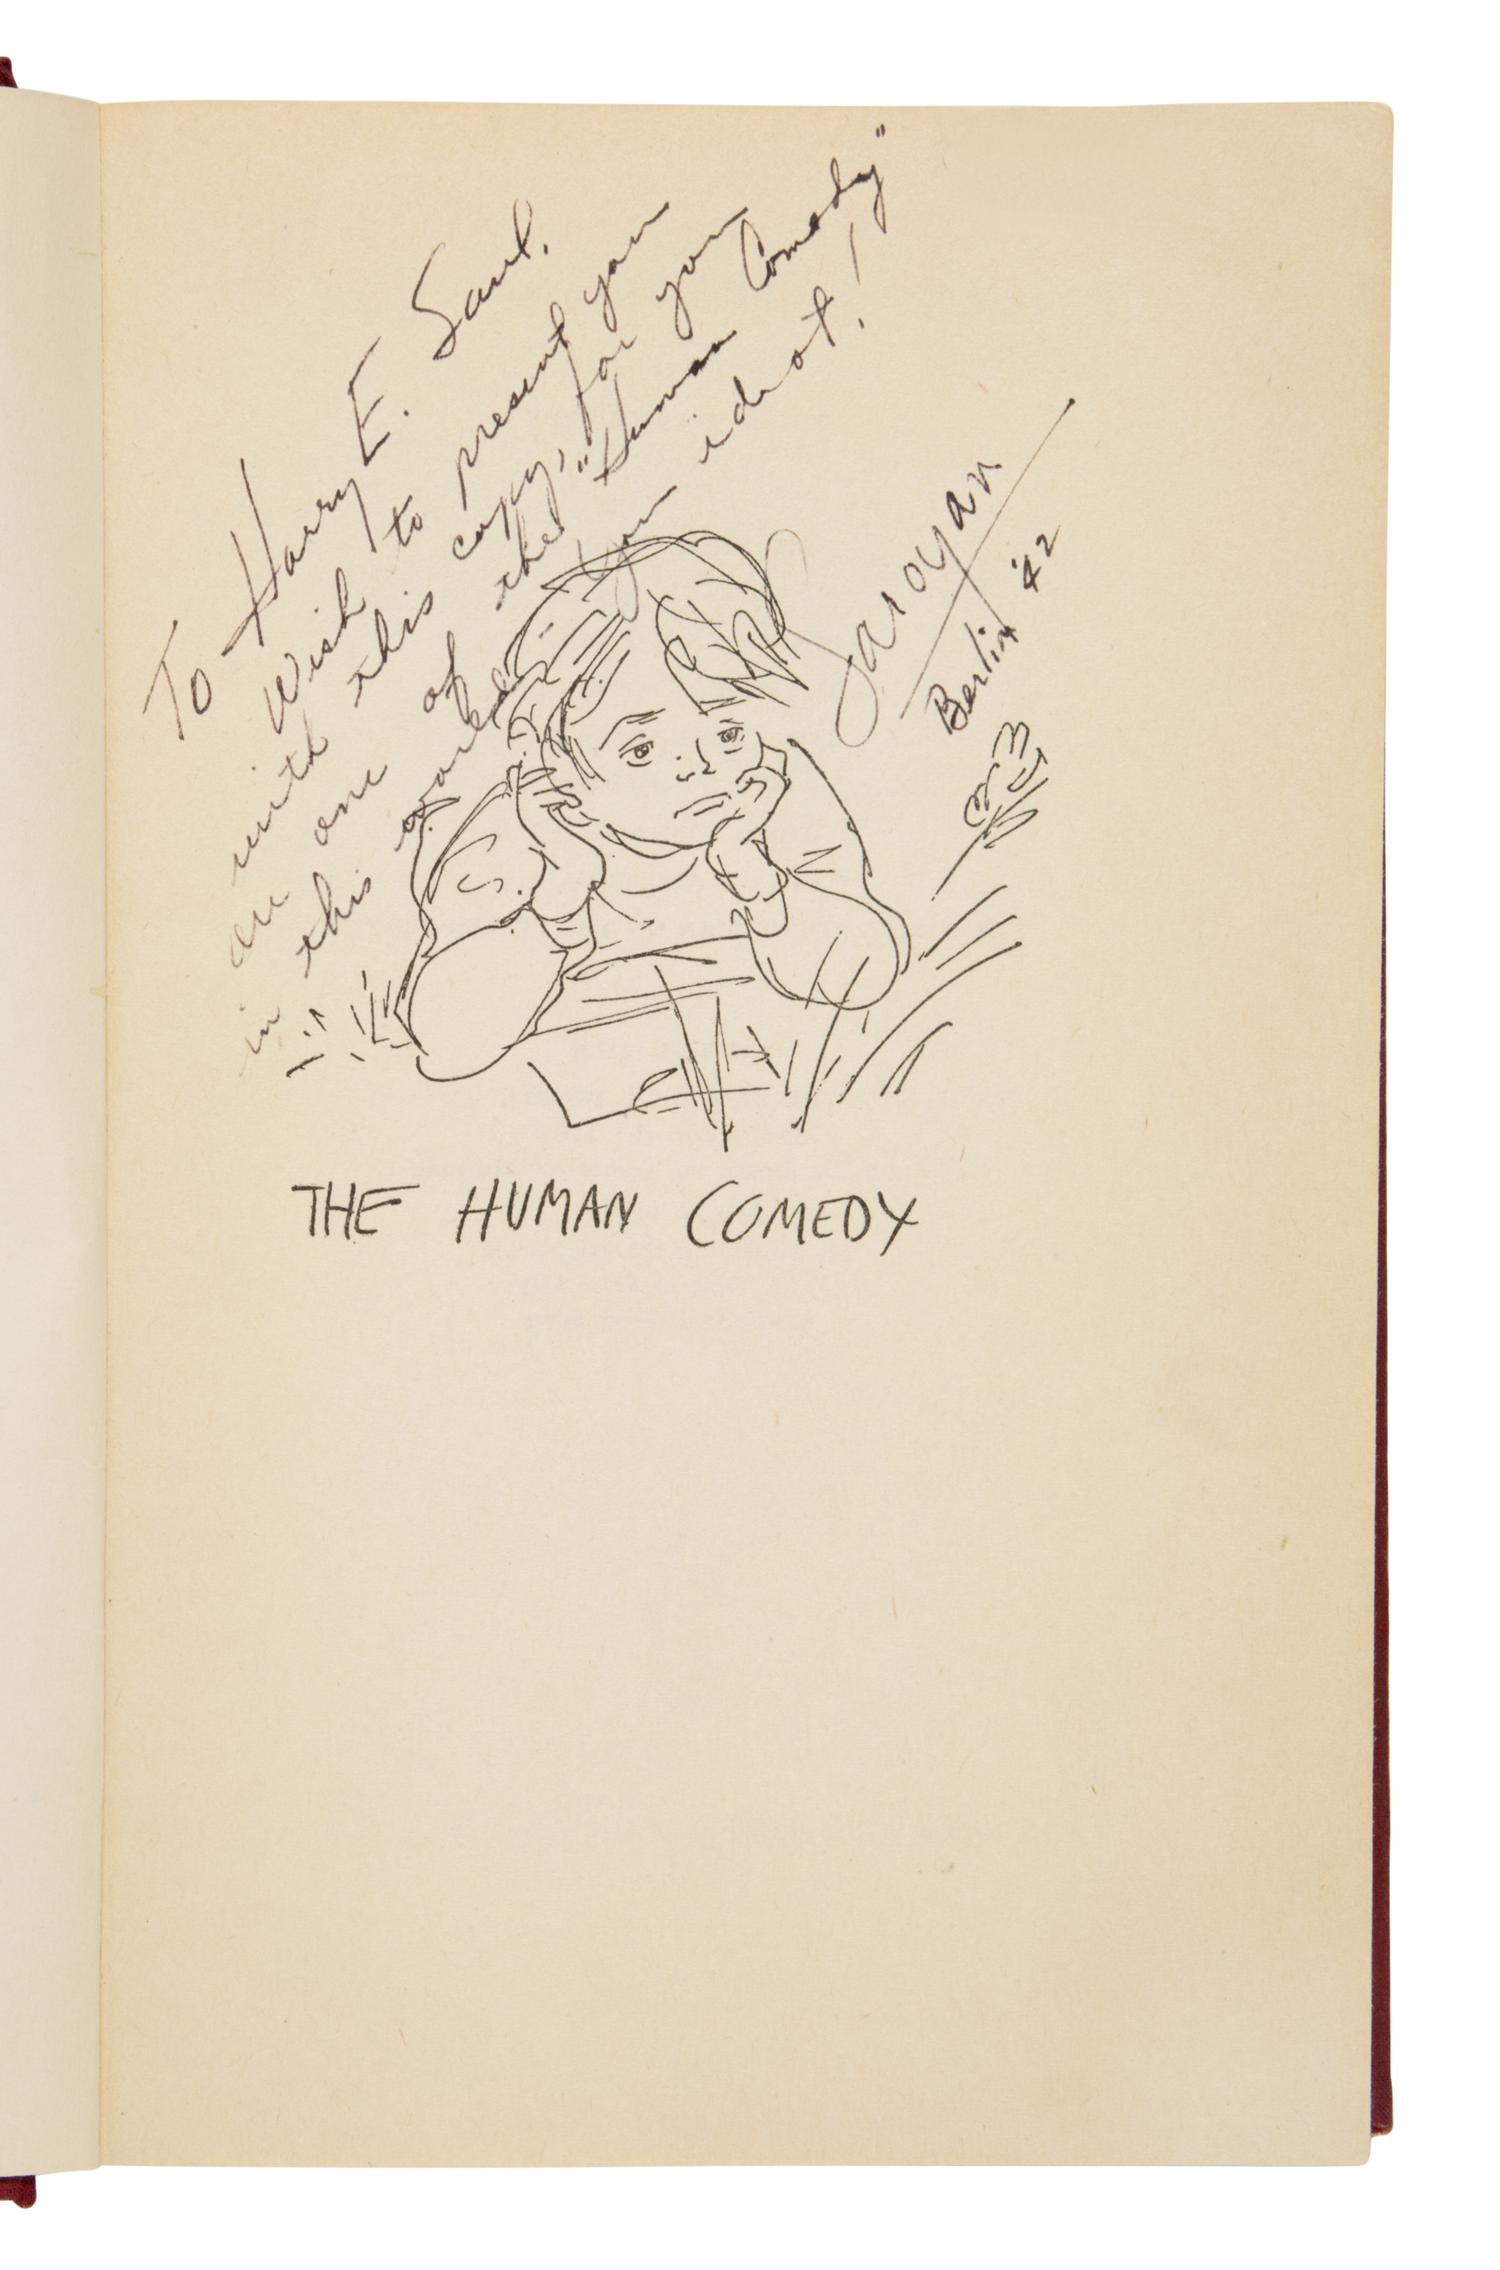 To Harry E. Saul.
Wish to present you
with this copy, for you
are one of the "Human Comedy"
in this world - you idiot!
Saroyan
Berlin '42
THE HUMAN COMEDY